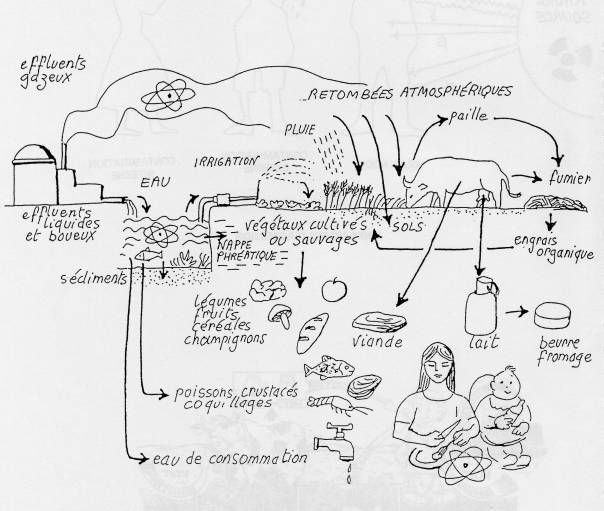 effluents
gazeux
RETOMBÉES ATMOSPHÉRIQUES
paille
PLUIE
IRRIGATION
fumier
EAU
effluents
liquides
et boueux
végétaux cultivés
ou sauvages
SOLS
NAPPE
PHRÉATIQUE
engrais
organique
sédiments
légumes
fruits
céréales
champignons
viande
lait
beurre
fromage
poissons crustacés
coquillages
eau de consommation